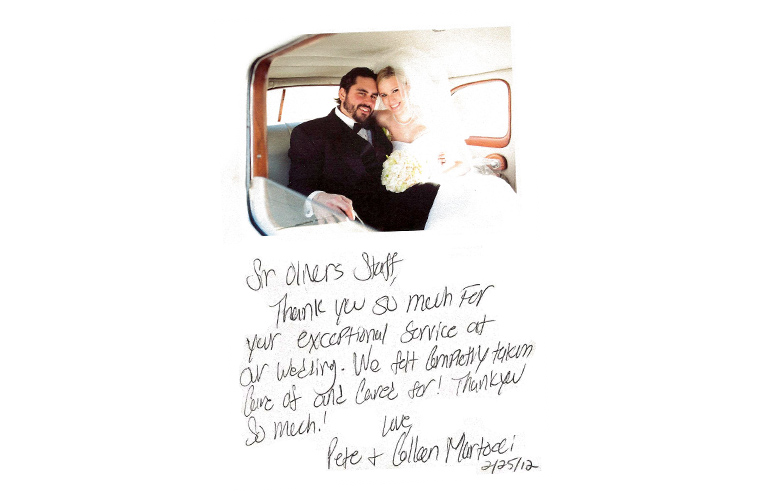 Sir Olivers Staff,
Thank you so much For
your exceptional Service at
our Wedding. We felt Completly taken
Care of and Cared for! Thankyou
So much!
Love,
Pete + Colleen Martocci
2/25/12